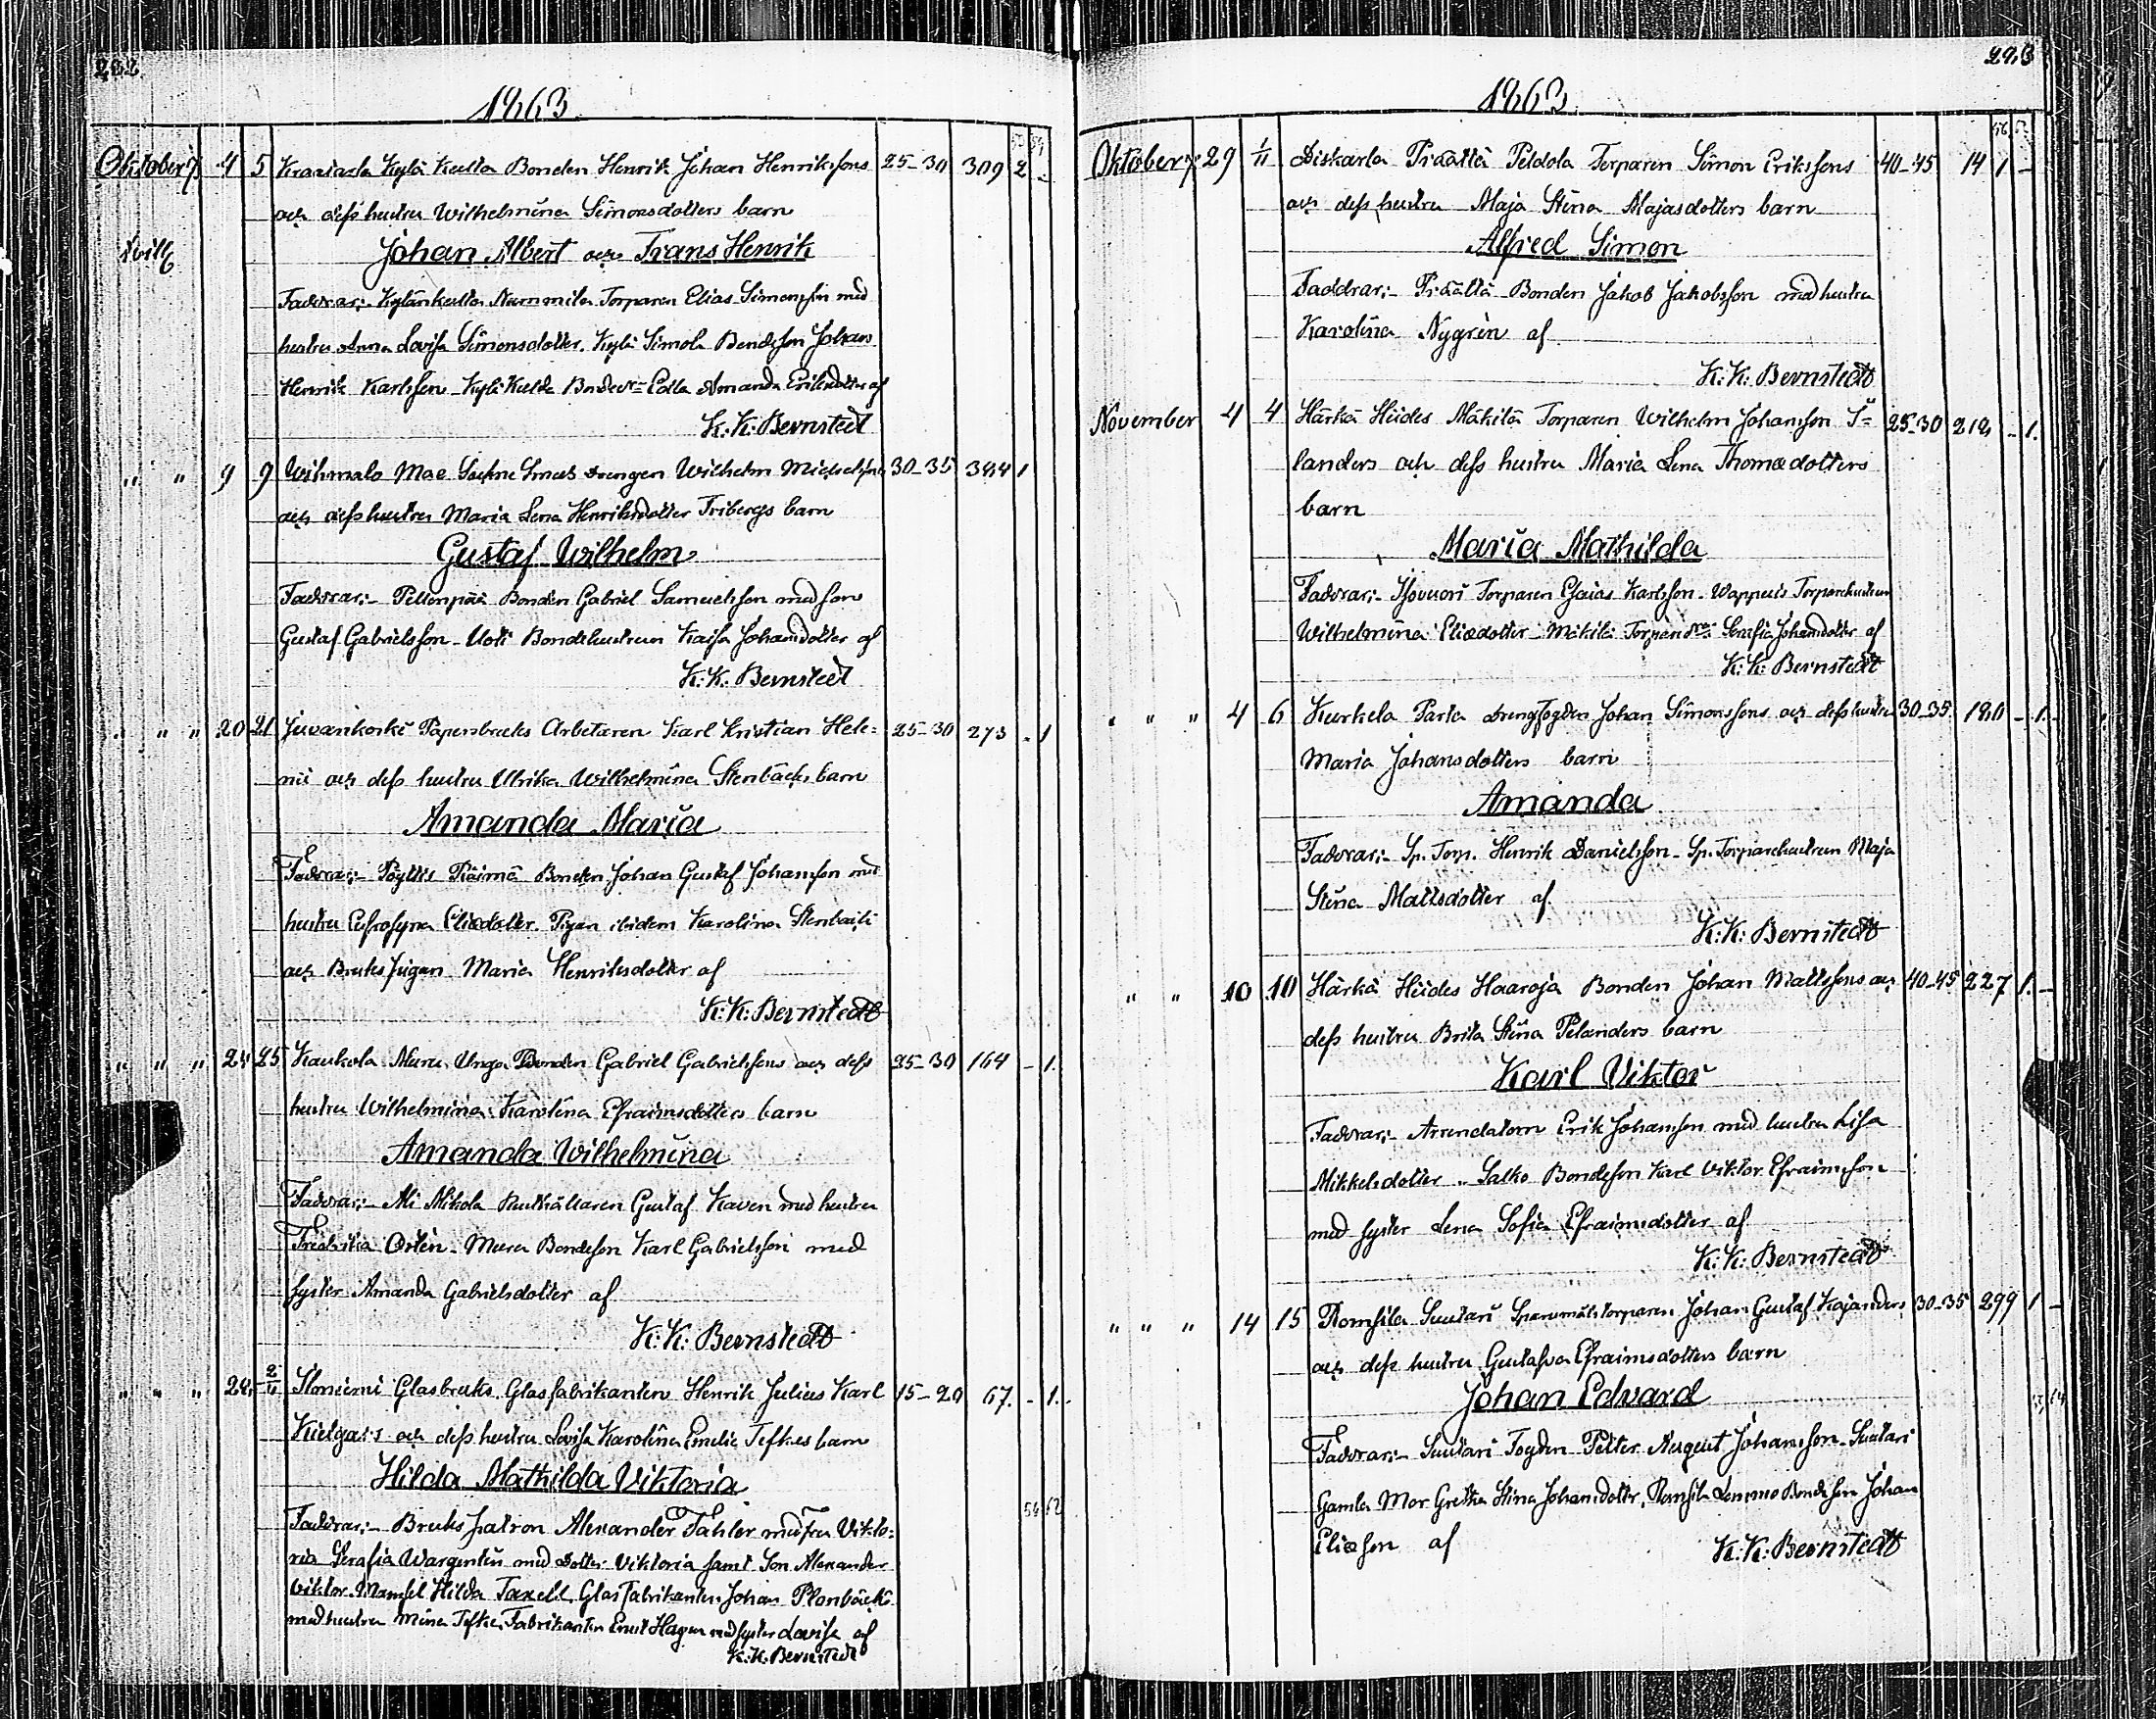 1863.
Oktober 4 5 Kylä Kulta Bonden Henrik Johan Henrikssons 25-30 309 2 -
och dess hustru Wilhelmina Simonsdotters barn
Johan Albert och Frans Henrik
Faddrar:- Nummila Torparen Elias Simonsson med
hustru Anna Lovisa Simonsdotter. Kylä Simola Bondeson Johan
Henrik Karlsson Amanda Eriksdotter af
K: K: Bernstedt
" " 9 9 drengen Wilhelm Michelssons 30-35 1
och dess hustru Maria Lena Henriksdotter Fribergs barn
Gustaf Wilhelm
Faddrar:- Pellonpää Bonden Gabriel Samuelsson med son
Gustaf Gabrielsson - Uoti Bondehustrun Kaisa Johansdotter af
K: K. Bernstedt
" " " 20 21 Juvankoski Papersbruks Arbetaren Karl Kristian Hele= 25-30 273 - 1
nii och dess hustru Ulrika Wilhelmina Stenbäcks barn
Amanda Maria
Faddrar:- Pöytiis Bonden Johan Gustaf Johansson med
hustru Eufrosyna Eliædotter. Pigan ibidem Karolina
och Brukspigan Maria Henriksdotter af
K: K: Bernstedt
" " " 24 25 Kaukola Bonden Gabriel Gabrielssons och dess 25-30 164 - 1.
hustru Wilhelmina Karolina Efraimsdotters barn
Amanda Wilhelmina
Faddrar:- Ali Nikola Gustaf Kaven med hustru
Fredrika Ortén - Bondeson Karl Gabrielsson med
syster Amanda Gabrielsdotter af
K: K: Bernstedt
" " " 2/11 Iloniemi Glasbruks Glasfabrikanten Henrik Julius Karl 15-20 67. - 1.
och dess hustru Lovisa Karolina Emelie barn
Hilda Mathilda Viktoria
Faddrar:- Brukspatron Alexander med fru Vikto=
ria Serafia Wargentin med dotter Viktoria samt Son Alexander
Viktor. Mamsel Hilda Taxell, Glasfabrikanten Johan
med hustru Mina Fabrikanten Ernst Hagen med syster Lovisa af
K: K. Bernstedt
293
1863.
Oktober 29 1/11 Torparen Simon Erikssons 40-45 14 1 -
och dess hustru Maja Stina Majasdotters barn
Alfred Simon
Faddrar:- Bonden Jakob Jakobsson med hustru
Karolina Nygrén af
K: K: Bernstedt
November 4 4 Härkä Hiides Mäkilä Torparen Wilhelm Johansson 25-30 - 1.
landers och dess hustru Maria Lena Thomædotters
barn
Maria Mathilda
Faddrar:- Isovuori Torparen Esaias Karlsson - Torparehustrun
Wilhelmina Eliædotter - Mäkilä Serafia Johansdotter af
K: K: Bernstedt
" " " 4 6 Kurkela Parta drengfogden Johan Simonssons och dess hustru 30-35 180 - 1.
Maria Johansdotters barn
Amanda
Faddrar:- Sp. Torp. Henrik Danielsson - Sp. Torparehustrun Maja
Stina Mattsdotter af
K: K: Bernstedt
" " 10 10 Härkä Hiides Haaroja Bonden Johan Mattssons och 40-45 227 1. -
dess hustru Brita Stina Pelanders barn
Karl Viktor
Faddrar:- Arrendatorn Erik Johansson med hustru Lisa
Mikkelsdotter - Salko Bondeson Karl Viktor Efraimsson
med syster Lena Sofia Efraimsdotter af
K: K: Bernstedt
" " " 14 15 Romsila Suutari Johan Gustaf Kajanders 30-35 299 1 -
och dess hustru Gustafva Efraimsdotters barn
Johan Edvard
Faddrar:- Suutari Fogden Petter August Johansson - Suutari
Gamla Mor Gretha Stina Johansdotter, Romsila Bondeson Johan
Eliæson af
K: K: Bernstedt